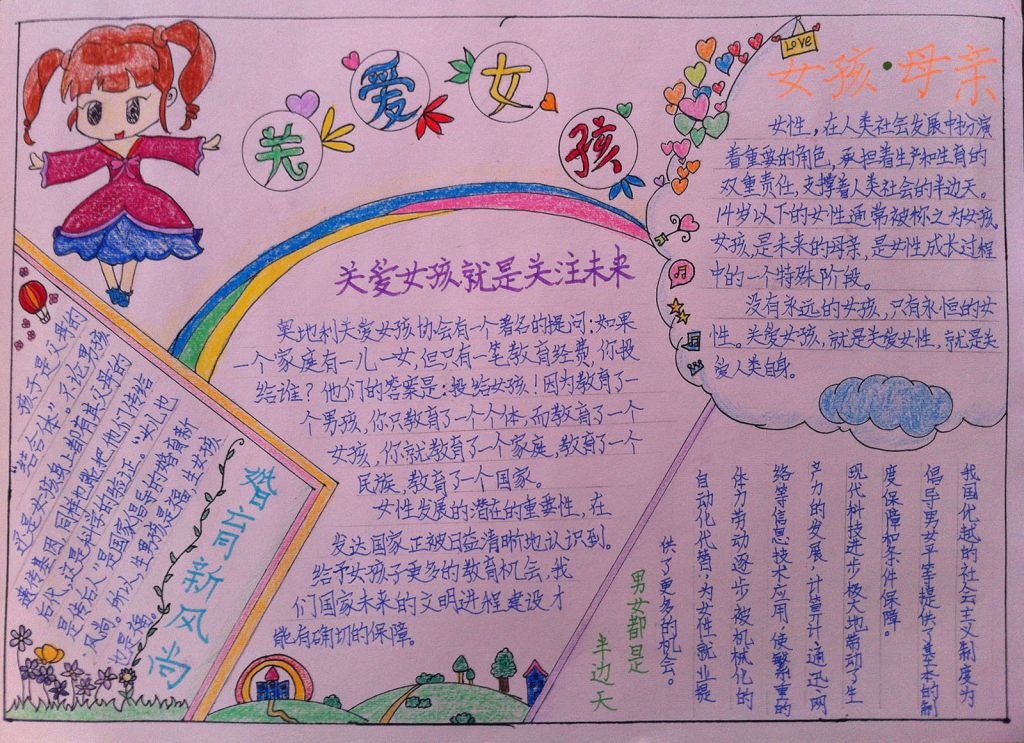 关爱女孩
LOVE
女孩·母亲
女性，在人类社会发展中扮演
着重要的角色，承担着生产和生育的
双重责任，支撑着人类社会的半边天。
14岁以下的女性通常被称之为女孩，
女孩，是未来的母亲，是女性成长过程
中的一个特殊阶段。
没有永远的女孩，只有永恒的女
性。关爱女孩，就是关爱女性，就是关
爱人类自身。
关爱女孩就是关注未来
奥地利关爱女孩协会有一个著名的提问：如果
一个家庭有一儿一女，但只有一笔教育经费，你投
给谁？他们的答案是：投给女孩！因为教育了一
个男孩，你只教育了一个个体，而教育了一个
女孩，你就教育了一个家庭，教育了一个
民族，教育了一个国家。
女性发展的潜在的重要性，在
发达国家正被日益清晰地认识到。
给予女孩子更多的教育机会，我
们国家未来的文明进程建设才
能有确切的保障。
婚育新风尚
孩子是父母的
“结合体”。不论男孩
还是女孩身上都有其父母的
遗传基因，同样也能把他们传给
后代，这是科学的验证。“女儿也
是传后人”是国家倡导的婚育新
风尚。所以，生男孩是福，生女孩
也是福。
男女都是
半边天
我国优越的社会主义制度为
倡导男女平等提供了基本的制
度保障和条件保障。
现代科技进步极大地带动了生
产力的发展，计算机、通迅、网
络等信息技术应用，使繁重的
体力劳动逐步被机械化的
自动化代替，为女性就业提
供了更多的机会。